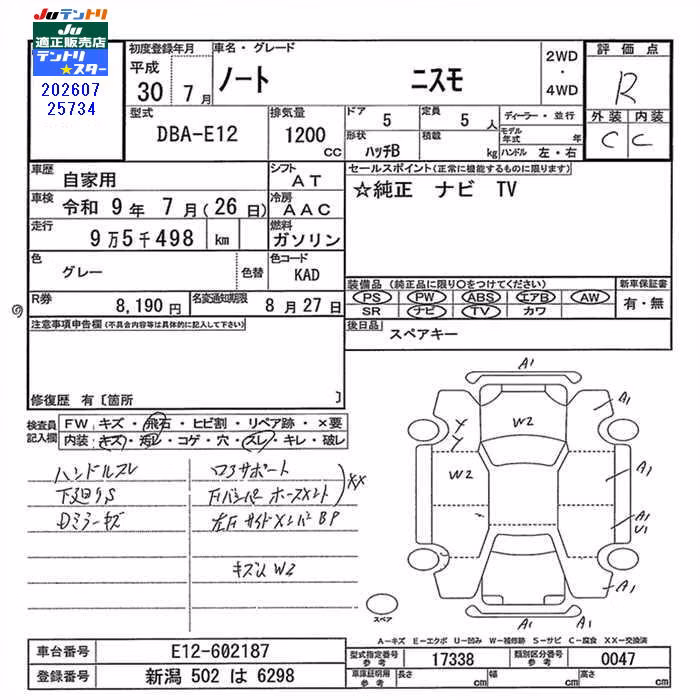 Juテントリ
Ju
適正販売店
テントリ
★スター
202607
25734
初度登録年月
平成
30 7月
車名・グレード
ノート ニスモ
2WD
・
4WD
評価点
R
外装 内装
C C
型式
DBA-E12
排気量
1200
CC
ドア
5
定員
5 人
形状
ハッチB
積載
kg
ディーラー・並行
モデル年式 年
ハンドル 左・右
車歴
自家用
シフト
AT
車検
令和 9年 7月(26日)
冷房
AAC
走行
9万5千498 km
燃料
ガソリン
色
グレー
色替
色コード
KAD
R券
8,190円
名変通知期限
8月27日
セールスポイント(正常に機能するものに限ります)
☆純正 ナビ TV
装備品(純正品に限り○をつけてください)
PS PW ABS エアB AW
SR ナビ TV カワ
新車保証書
有・無
後日品
スペアキー
注意事項申告欄(不具合内容等は具体的に記入して下さい)
修復歴 有〔箇所 〕
検査員
記入欄
FW キズ・飛石・ヒビ割・リペア跡・×要
内装 キズ・汚レ・コゲ・穴・スレ・キレ・破レ
ハンドルスレ
下廻りS
Dミラーキズ
ロアサポート
FバンパーホースメントXX
左F サイドメンバーBP
W2
A1
A1
W2
W2
A1
A1
U1
A1
A1
スペア
A−キズ E−エクボ U−凹み W−補修跡 S−サビ C−腐食 XX−交換済
車台番号
E12-602187
登録番号
新潟 502 は 6298
型式指定番号
参考
17338
類別区分番号
参考
0047
車庫証明用
参考
長さ cm 幅 cm 高さ cm